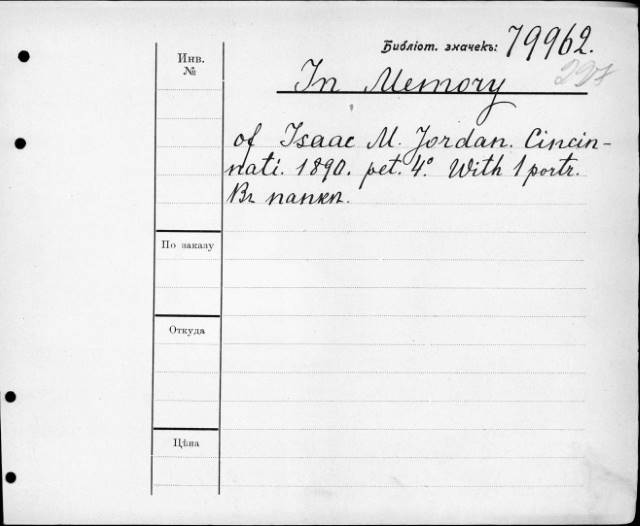 Библіот. значекъ: 79962.
Инв.
№
In Memory
of Isaac M. Jordan. Cincin-
nati. 1890. pet. 4.° With 1 portr.
Въ папкѣ.
По заказу
Откуда
Цѣна